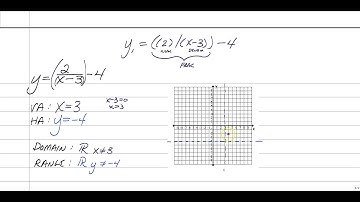 y₁ = ((2)/(x-3)) -4
NUM DENOM
FRAC
y = (2/(x-3)) -4
VA: x=3
x-3=0
x=3
HA: y=-4
DOMAIN: ℝ x≠3
RANGE: ℝ y≠-4